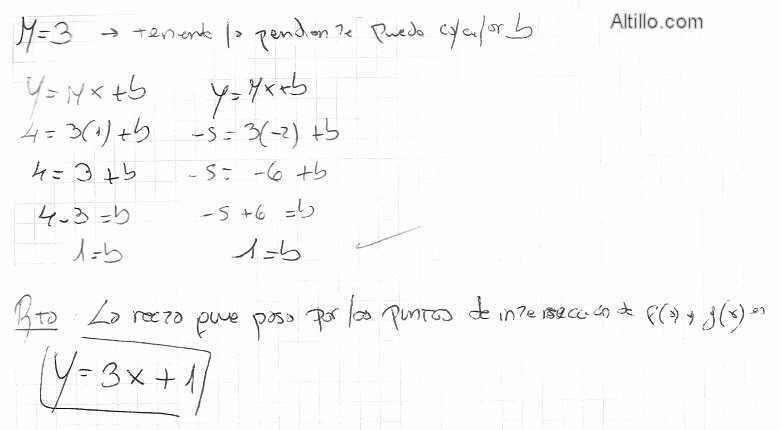 Altillo.com
M=3 → teniendo la pendiente puedo calcular b
y=Mx+b    y=Mx+b
4=3(1)+b    -5=3(-2)+b
4=3+b    -5=-6+b
4-3=b    -5+6=b
1=b    1=b
Rta La recta que pasa por los puntos de intersección de f(x) y g(x) es
y=3x+1